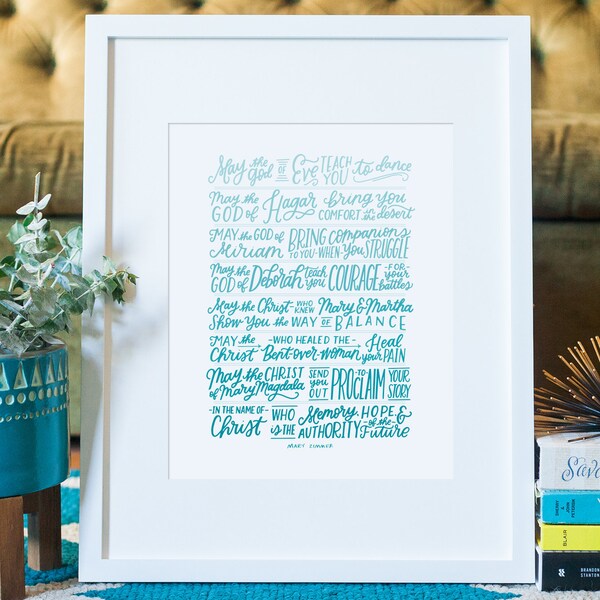 May the God of Eve TEACH YOU to dance
MAY the GOD of Hagar bring you COMFORT IN the desert
MAY the GOD OF Miriam BRING companions TO YOU WHEN YOU STRUGGLE
May the GOD of Deborah teach you COURAGE -FOR- your battles
May the Christ WHO KNEW Mary & Martha
Show You the WAY OF BALANCE
MAY the Christ -WHO HEALED THE- Bent-over-woman Heal your PAIN
May the CHRIST of Mary Magdala SEND YOU OUT -TO- PROCLAIM YOUR STORY
-IN THE NAME OF- Christ WHO is the Memory, HOPE, & AUTHORITY -of the- Future
MARY ZIMMER
Save
BLAIR
BRANDON STANTON